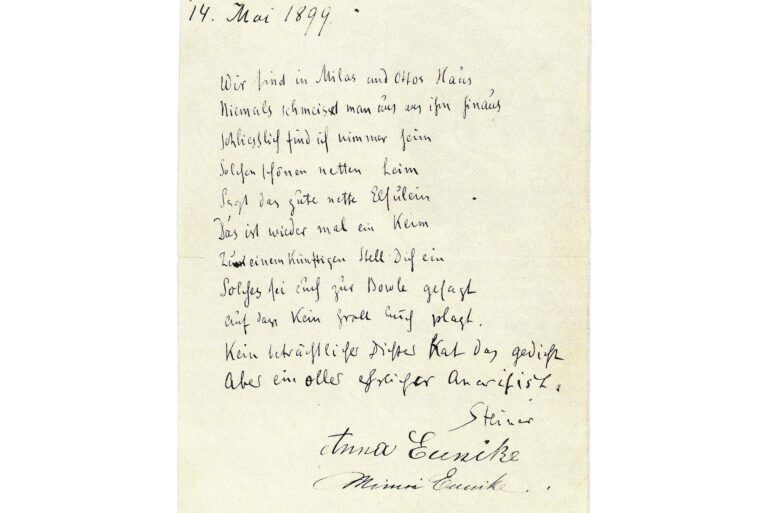 14. Mai 1899.
Wir sind in Milas und Ottos Haus
Niemals schmeisst man uns aus ihm hinaus
Schliesslich find ich nimmer heim
Solchen schönen netten Leim
Sagt das gute nette Elsulein
Das ist wieder mal ein Keim
Zum einem Künftigen Stell Dich ein
Solches sei Euch zur Bowle gesagt
auf dass Kein Groll Euch plagt.
Kein beträchtlicher Dichter hat das gedicht
Aber ein oller ehrlicher Anarchist.
Steiner
Anna Eunike
Minni Eunike